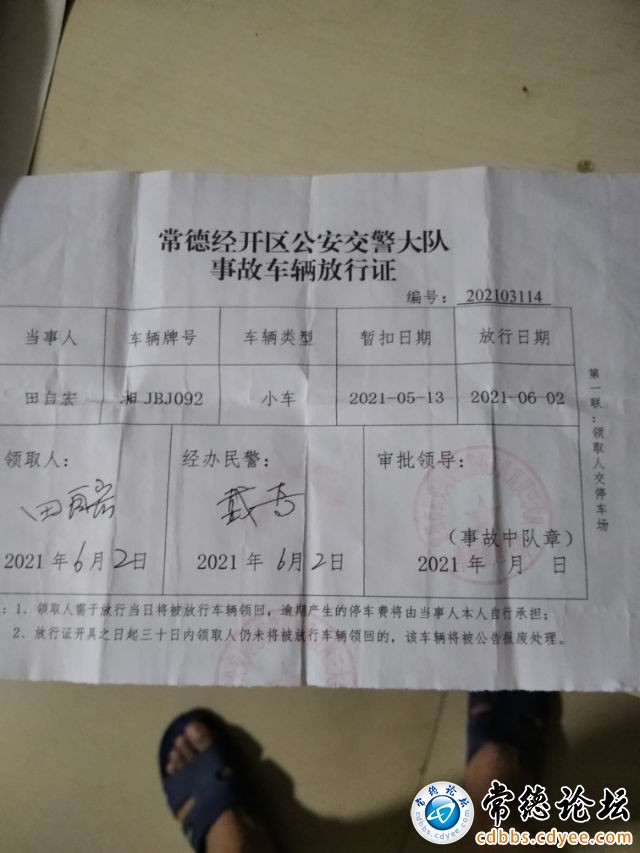 常德经开区公安交警大队
事故车辆放行证
编号：202103114
当事人 车辆牌号 车辆类型 暂扣日期 放行日期
田自宏 湘JBJ092 小车 2021-05-13 2021-06-02
领取人： 经办民警： 审批领导：
（事故中队章）
2021年6月2日 2021年6月2日 2021年 月 日
：1、领取人需于放行当日将被放行车辆领回，逾期产生的停车费将由当事人本人自行承担；
2、放行证开具之日起三十日内领取人仍未将被放行车辆领回的，该车辆将被公告报废处理。
第一联：领取人交停车场
常德论坛
cdbbs.cdyee.com